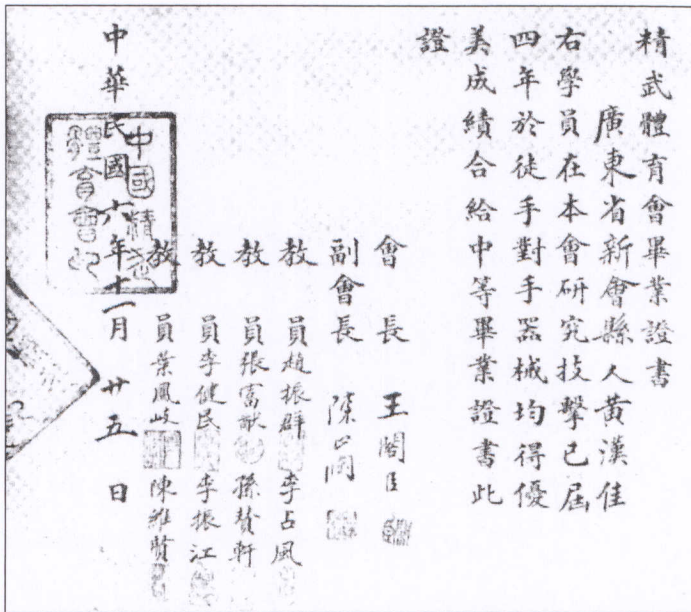 精武體育會畢業證書
廣東省新會縣人黃漢佳
右學員在本會研究技擊已屆
四年於徒手對手器械均得優
美成績合給中等畢業證書此
證
會長 王閣臣
副會長 陳公
教員 趙振群 李占風
教員 張富猷 孫贊軒
教員 李健民 李振江
教員 葉鳳岐 陳維賢
中華民國六年十一月廿五日
中國精武
體育會印